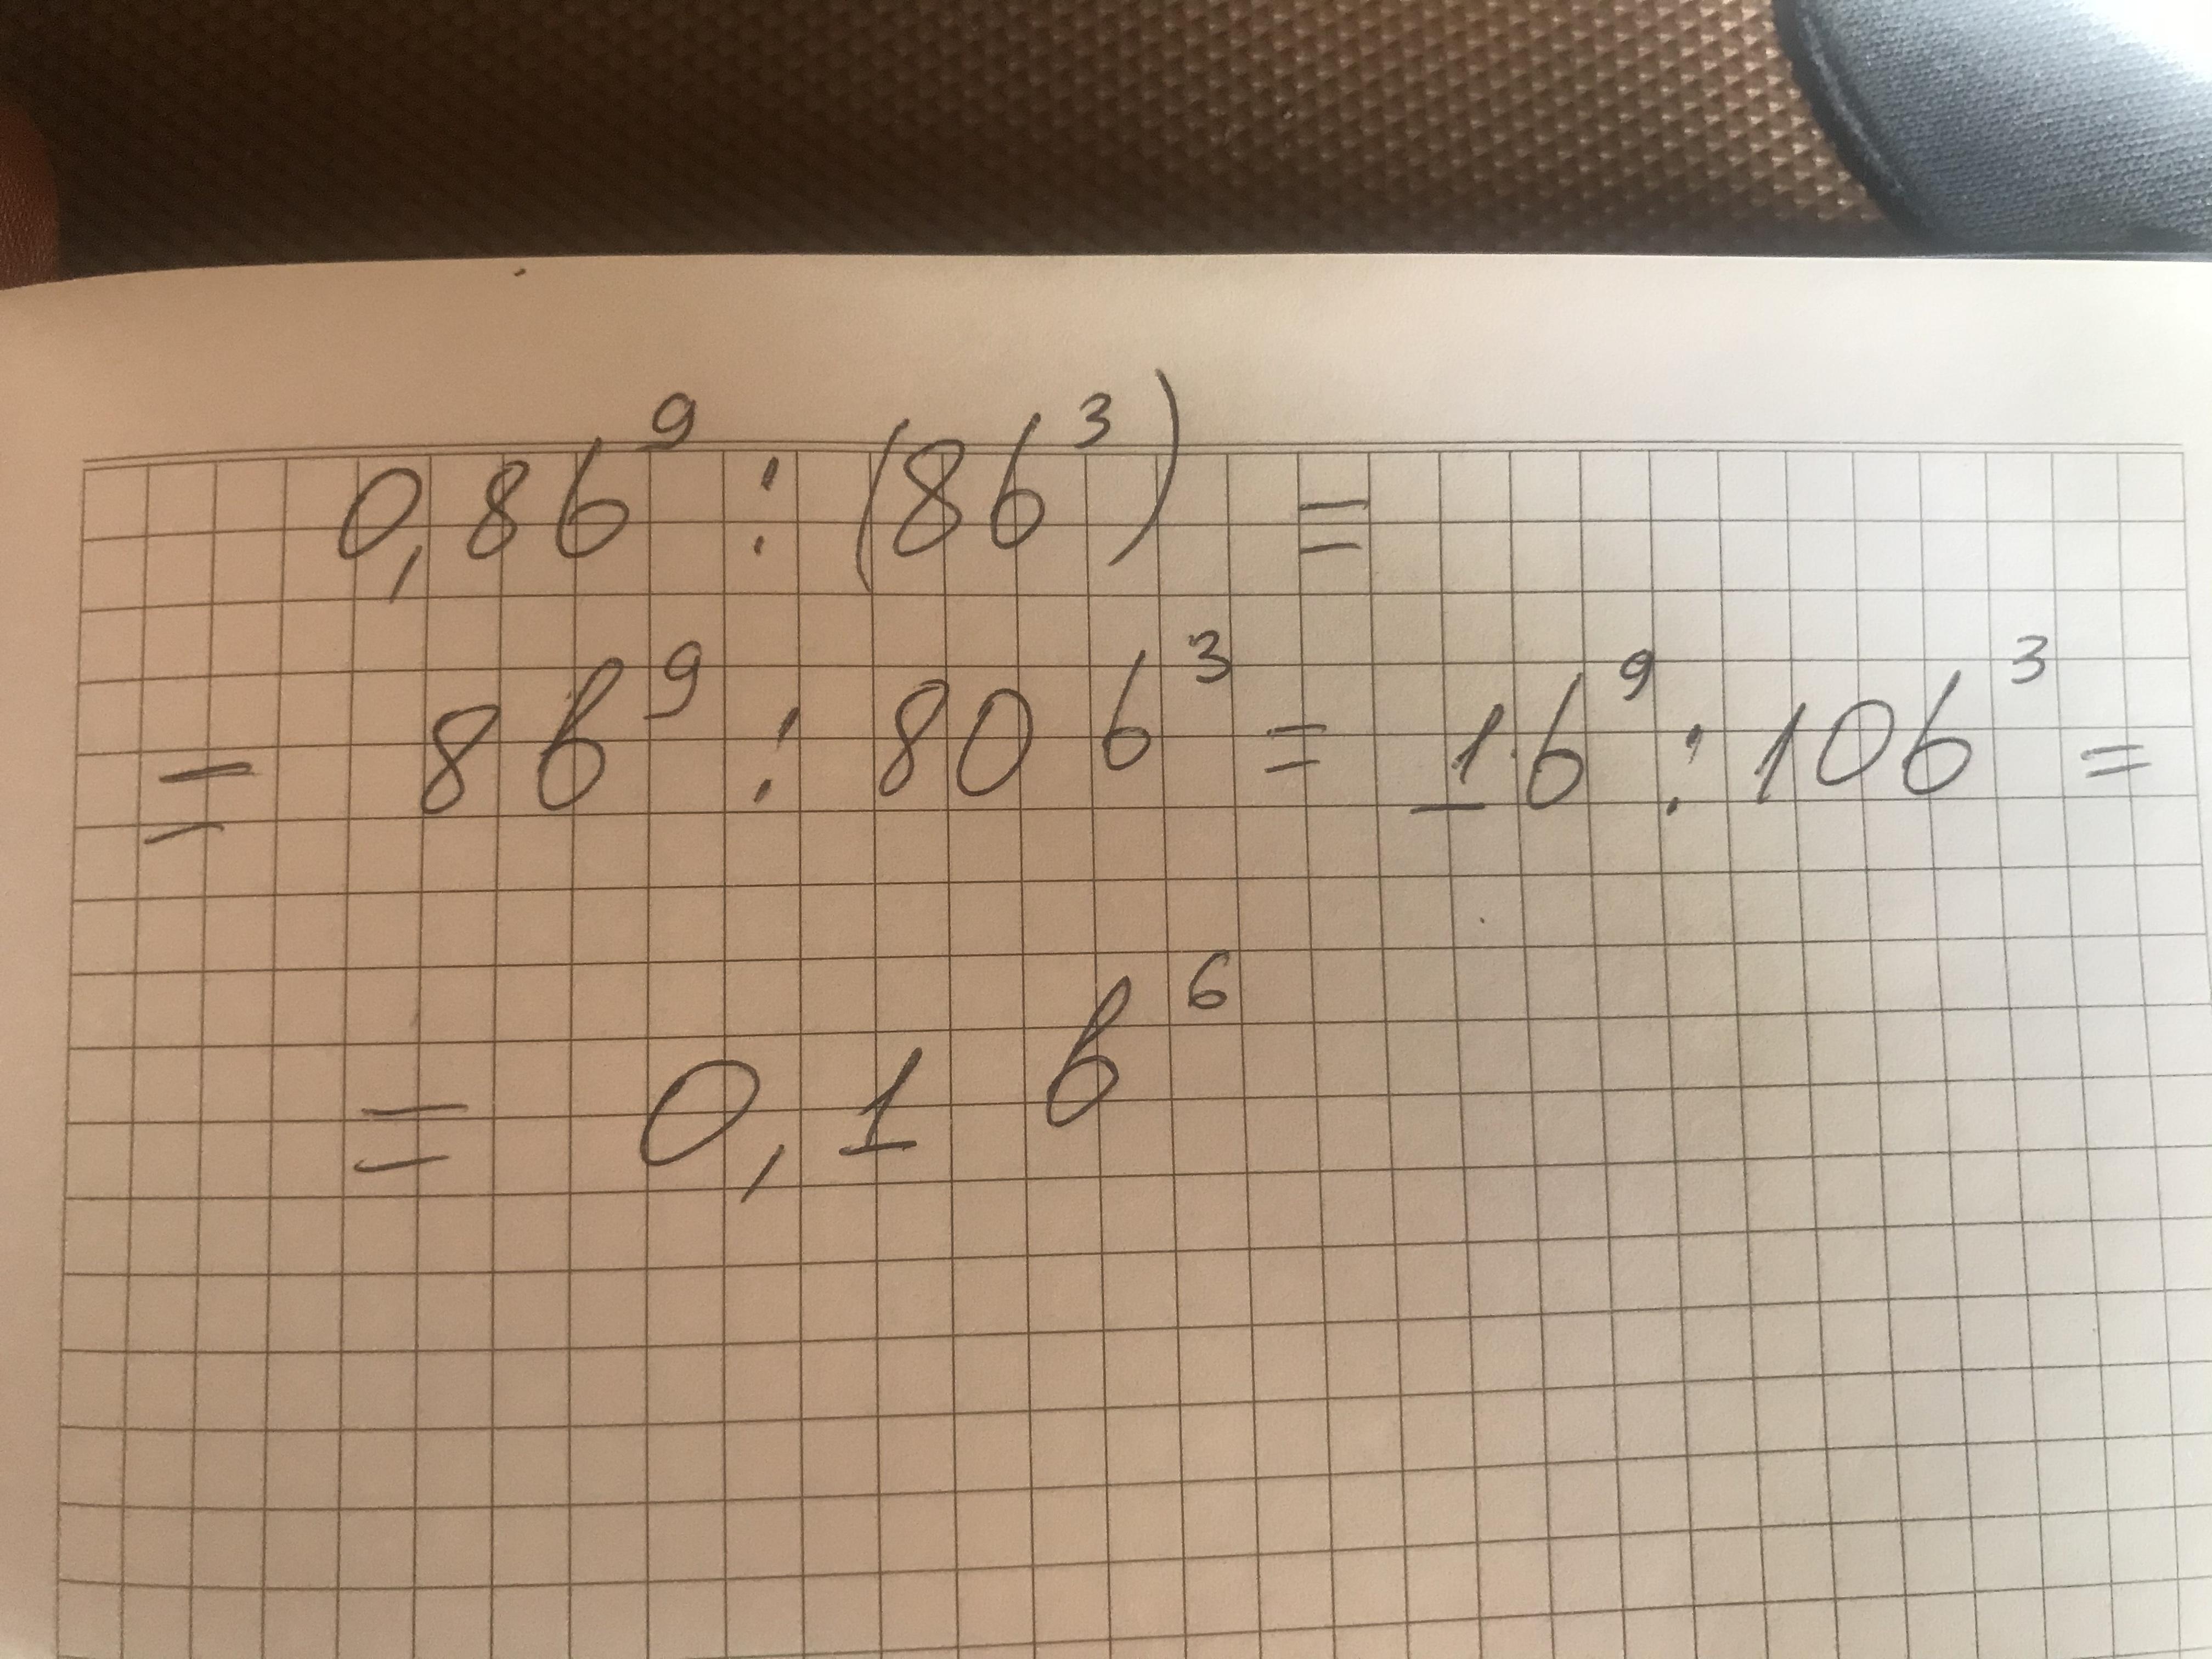 0,8b⁹ : (8b³) =
= 8b⁹ : 80b³ = 1·b⁹ : 10b³ =
= 0,1 b⁶